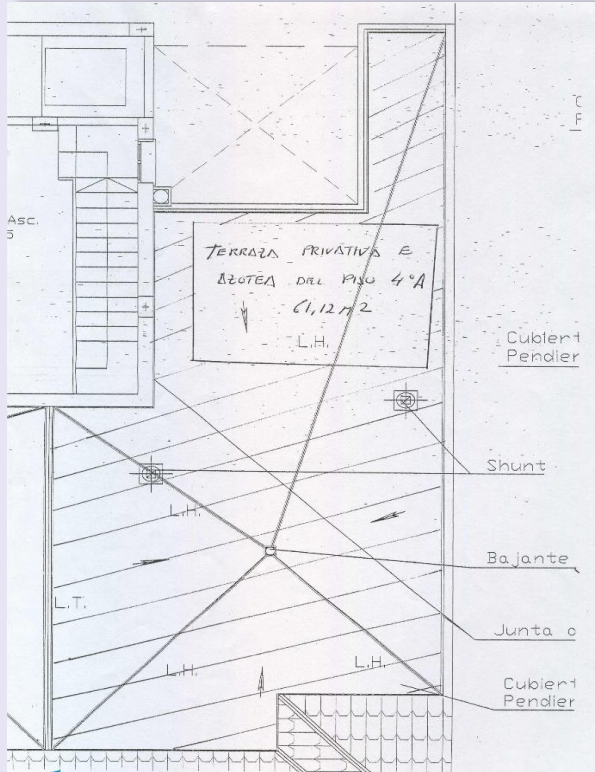 Asc.
TERRAZA PRIVATIVA E
AZOTEA DEL PISO 4ºA
61,12 M2
L.H.
Cubiert
Pendier
Shunt
L.H.
Bajante
L.T.
Junta c
L.H.
L.H.
Cubiert
Pendier